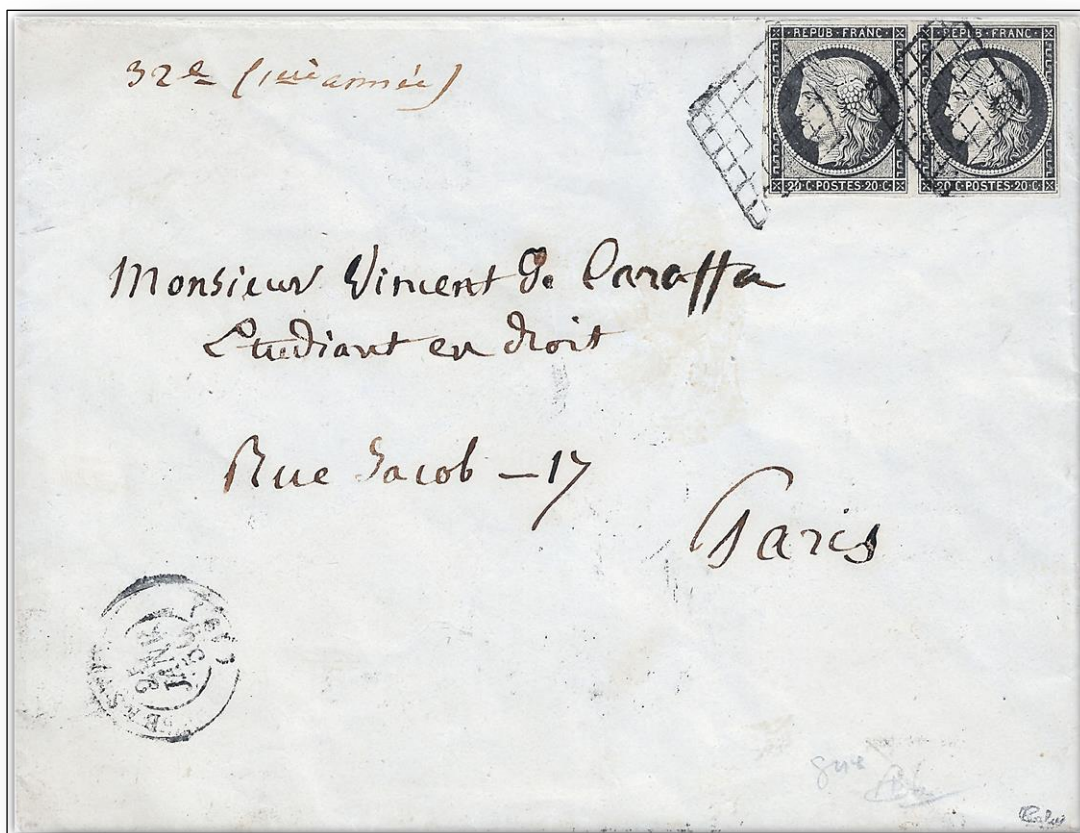 32e (1ère année)
REPUB·FRANC·
REPUB·FRANC·
20·C·POSTES·20·C·
20·C·POSTES·20·C·
Monsieur Vincent de Caraffa
Etudiant en droit
Rue Jacob – 17
Paris